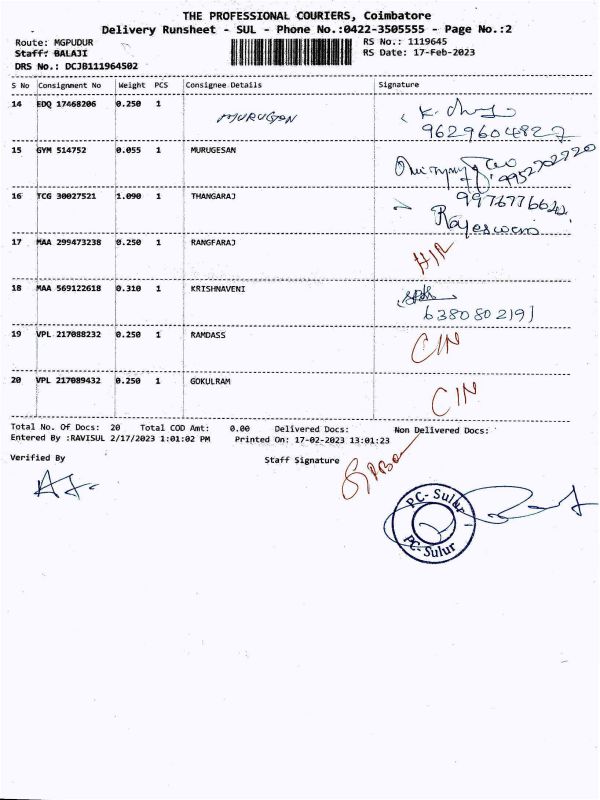 THE PROFESSIONAL COURIERS, Coimbatore
Delivery Runsheet - SUL - Phone No.:0422-3505555 - Page No.:2
Route: MGPUDUR RS No.: 1119645
Staff: BALAJI RS Date: 17-Feb-2023
DRS No.: DCJB111964502
S No Consignment No Weight PCS Consignee Details Signature
14 EDQ 17468206 0.250 1 MURUGAN
9629604827
15 GYM 514752 0.055 1 MURUGESAN
9952702720
16 TCG 30027521 1.090 1 THANGARAJ 9976776642
Rajeswari
17 MAA 299473238 0.250 1 RANGFARAJ
18 MAA 569122618 0.310 1 KRISHNAVENI
6380802191
19 VPL 217088232 0.250 1 RAMDASS CIN
20 VPL 217089432 0.250 1 GOKULRAM CIN
Total No. Of Docs: 20 Total COD Amt: 0.00 Delivered Docs: Non Delivered Docs:
Entered By :RAVISUL 2/17/2023 1:01:02 PM Printed On: 17-02-2023 13:01:23
Verified By Staff Signature
PC-Sulur
PC-Sulur